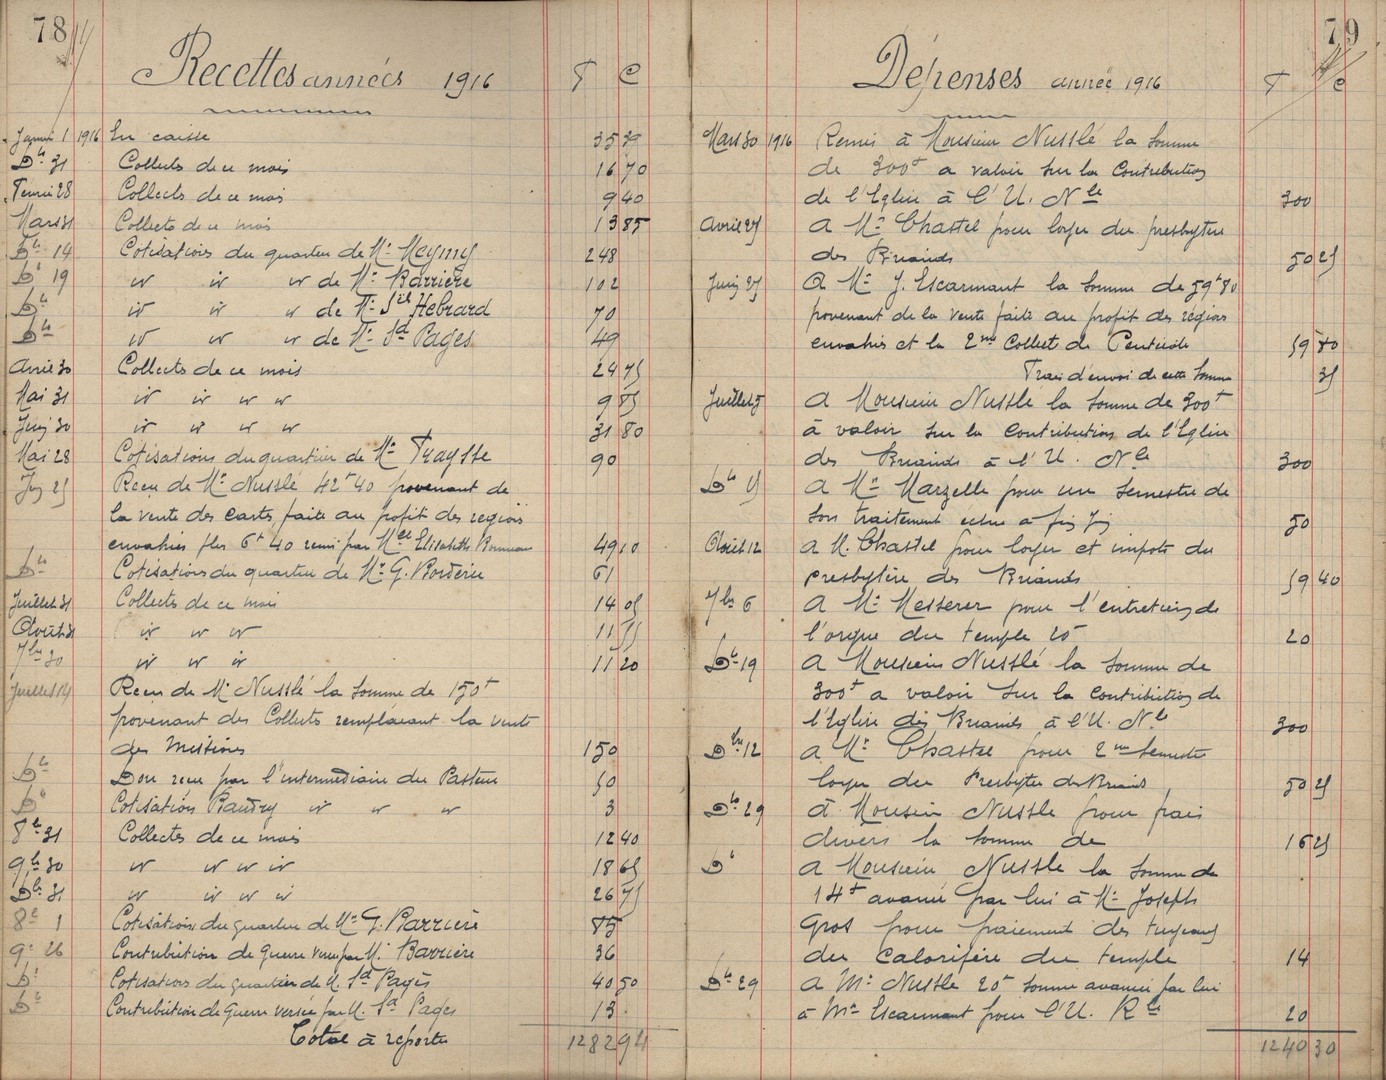 78
Recettes années 1916 F C
Janvier 1 1916 En caisse 35 39
Dto 31 Collects de ce mois 16 70
Fevrier 28 Collects de ce mois 9 40
Mars 31 Collects de ce mois 13 85
Dto 14 Cotisations du quartier de Mr Meymy 248
Dto 19 " " " de Mr Barriere 102
Dto " " " de Mr Sel Hebrard 70
Dto " " " de Mr Sd Pages 49
Avril 30 Collects de ce mois 24 75
Mai 31 " " " " 9 85
Juin 30 " " " " 31 80
Mai 28 Cotisations du quartier de Mr Traysse 90
Juin 25 Recu de Mr Nusslé 42f 40 provenant de
la vente des cartes faite au profit des regions
envahies plus 6f 40 remi par Melle Elisabeth 49 10
Dto Cotisations du quartier de Mr G. Borderie 61
Juillet 31 Collects de ce mois 14 05
Août 31 " " " 11 55
7bre 30 " " " 11 20
Juillet 14 Recu de Mr Nusslé la somme de 150f
provenant des Collects remplacant la vente
des missions 150
Dto Don recu par l'intermediaire du Pasteur 50
Dto Cotisation Baudry " " " 3
8bre 31 Collectes de ce mois 12 40
9bre 30 " " " " 18 65
Dbre 31 " " " " 26 75
8bre 1 Cotisation du quartier de Mr G. Barriere 85
9bre 26 Contribution de Guerre versée par Mr Barriere 36
Dto Cotisations du quartier de M. Sd Pagès 40 50
Dto Contribution de Guerre versée par M. Sd Pages 13
Total à reporter 1282 94
79
Dépenses année 1916 F C
Mars 30 1916 Remis à Monsieur Nusslé la somme
de 300f a valoir sur la Contribution
de l'Eglise à l'U. Nle 300
Avril 25 a Mr Chastel pour loyer du presbytère
des Briands 50 25
Juin 25 a Mr J. Escarmant la somme de 59f 80
provenant de la vente faite au profit des régions
envahies et la 2me Collect de Pentecôte 59 80
Frais d'envoi de cette somme 35
Juillet 5 a Monsieur Nusslé la somme de 300f
à valoir sur la Contribution de l'Eglise
des Briands à l'U. Nle 300
Dto 15 a Mr Marzelle pour un semestre de
son traitement echu a fin Juin 50
Août 12 a M. Chastel pour loyer et impots du
presbytère des Briands 59 40
7bre 6 a Mr Messerer pour l'entretien de
l'orgue du temple 20f 20
Dto 19 a Monsieur Nusslé la somme de
300f a valoir sur la contribution de
l'Eglise des Briands à l'U. Nle 300
Dbre 12 a Mr Chastel pour 2me Semestre
loyer du Presbytere des Briands 50 25
Dto 29 à Monsieur Nussle pour frais
divers la somme de 16 25
Dto a Monsieur Nussle la somme de
14f avancé par lui à Mr Joseph
Gros pour paiement des tuyaux
du calorifère du temple 14
Dto 29 a Mr Nussle 20f somme avancée par lui
à Mr Escarmant pour l'U. Rle 20
1240 30